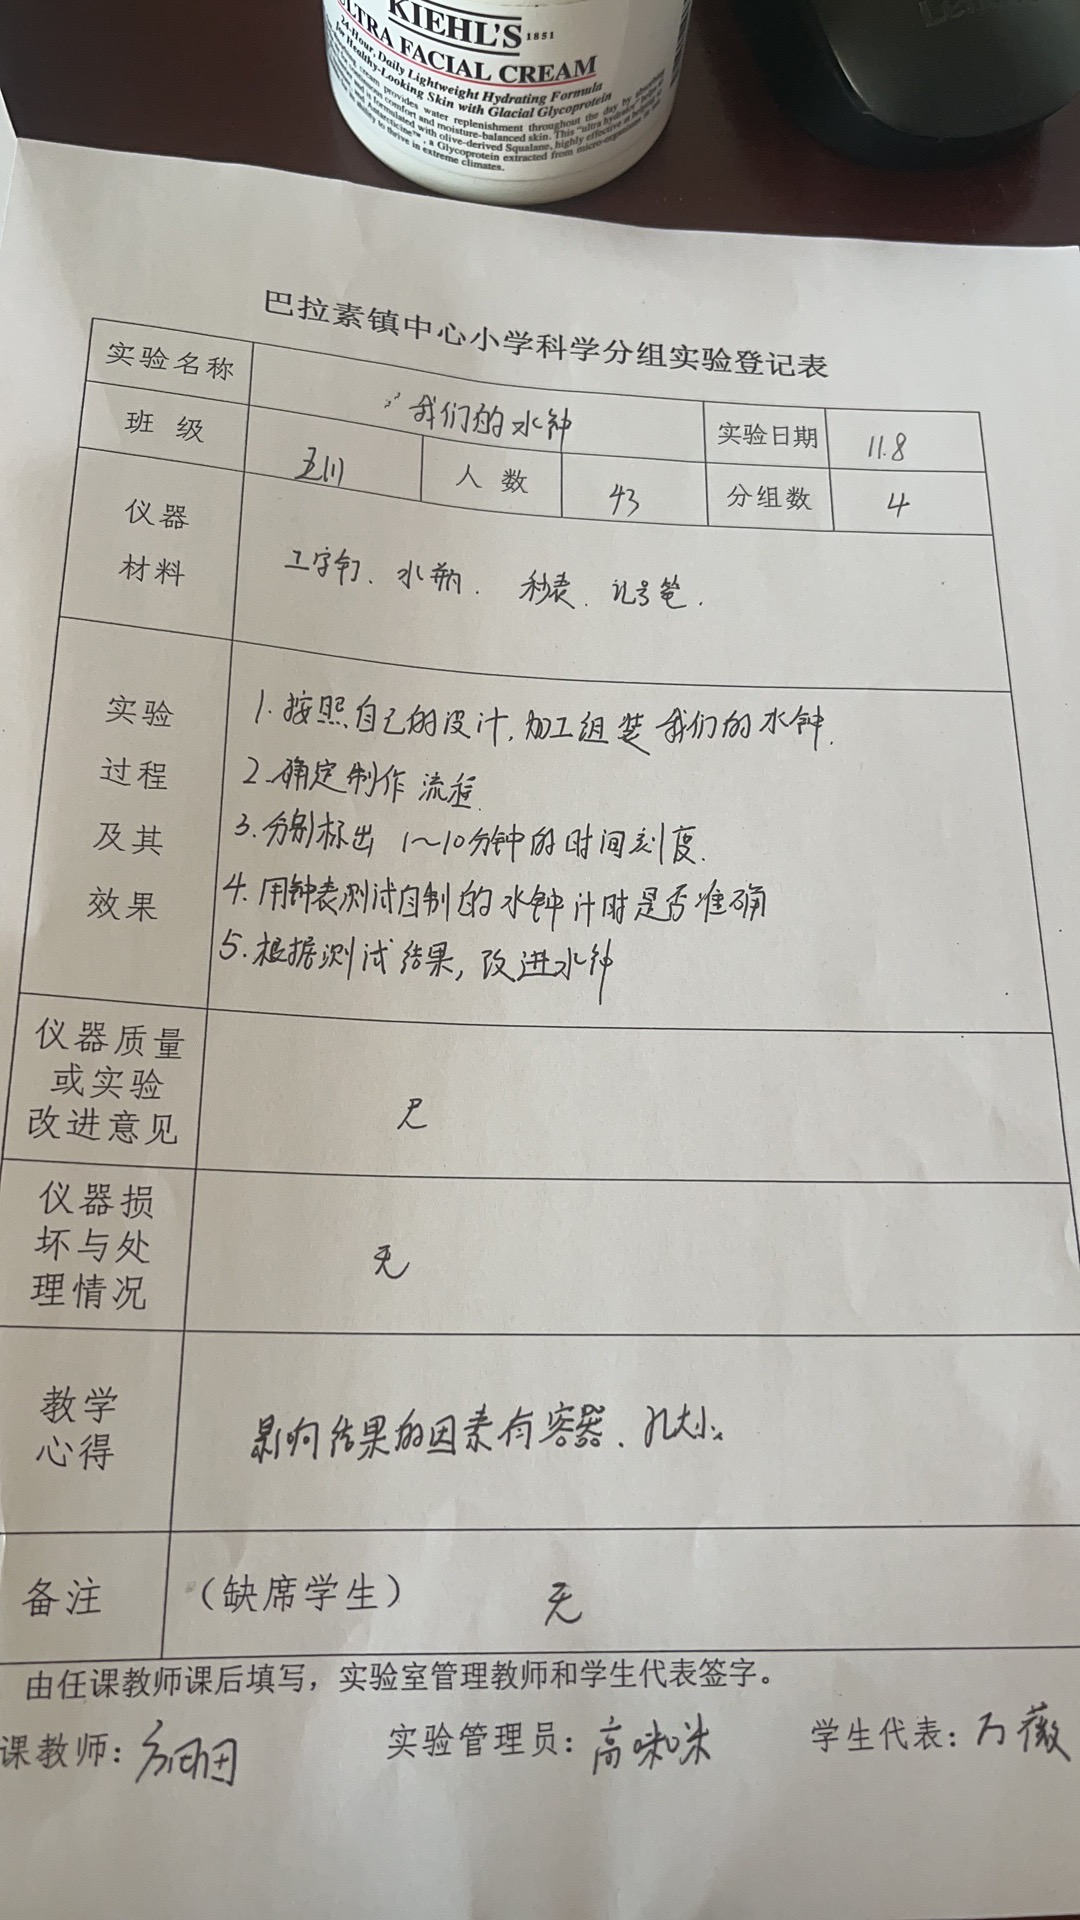 KIEHL'S 1851
ULTRA FACIAL CREAM
24-Hour, Daily Lightweight Hydrating Formula
for Healthy-Looking Skin with Glacial Glycoprotein
cream provides water replenishment throughout the day by absorbing
comfort and moisture-balanced skin. This "ultra hydrator"
is formulated with olive-derived Squalane, highly effective
a Glycoprotein extracted from micro-organisms
to thrive in extreme climates.
巴拉素镇中心小学科学分组实验登记表
实验名称 我们的水钟 实验日期 11.8
班 级 五(1) 人 数 43 分组数 4
仪器
材料
工字钉、水瓶、秒表、记号笔.
实验
过程
及其
效果
1.按照自己的设计,加工组装我们的水钟.
2.确定制作流程.
3.分别标出1~10分钟的时间刻度.
4.用钟表测试自制的水钟计时是否准确
5.根据测试结果,改进水钟
仪器质量
或实验
改进意见
无
仪器损
坏与处
理情况
无
教学
心得
影响结果的因素有容器、孔大小
备注 (缺席学生) 无
由任课教师课后填写,实验室管理教师和学生代表签字。
课教师: 实验管理员:高咪咪 学生代表:万薇